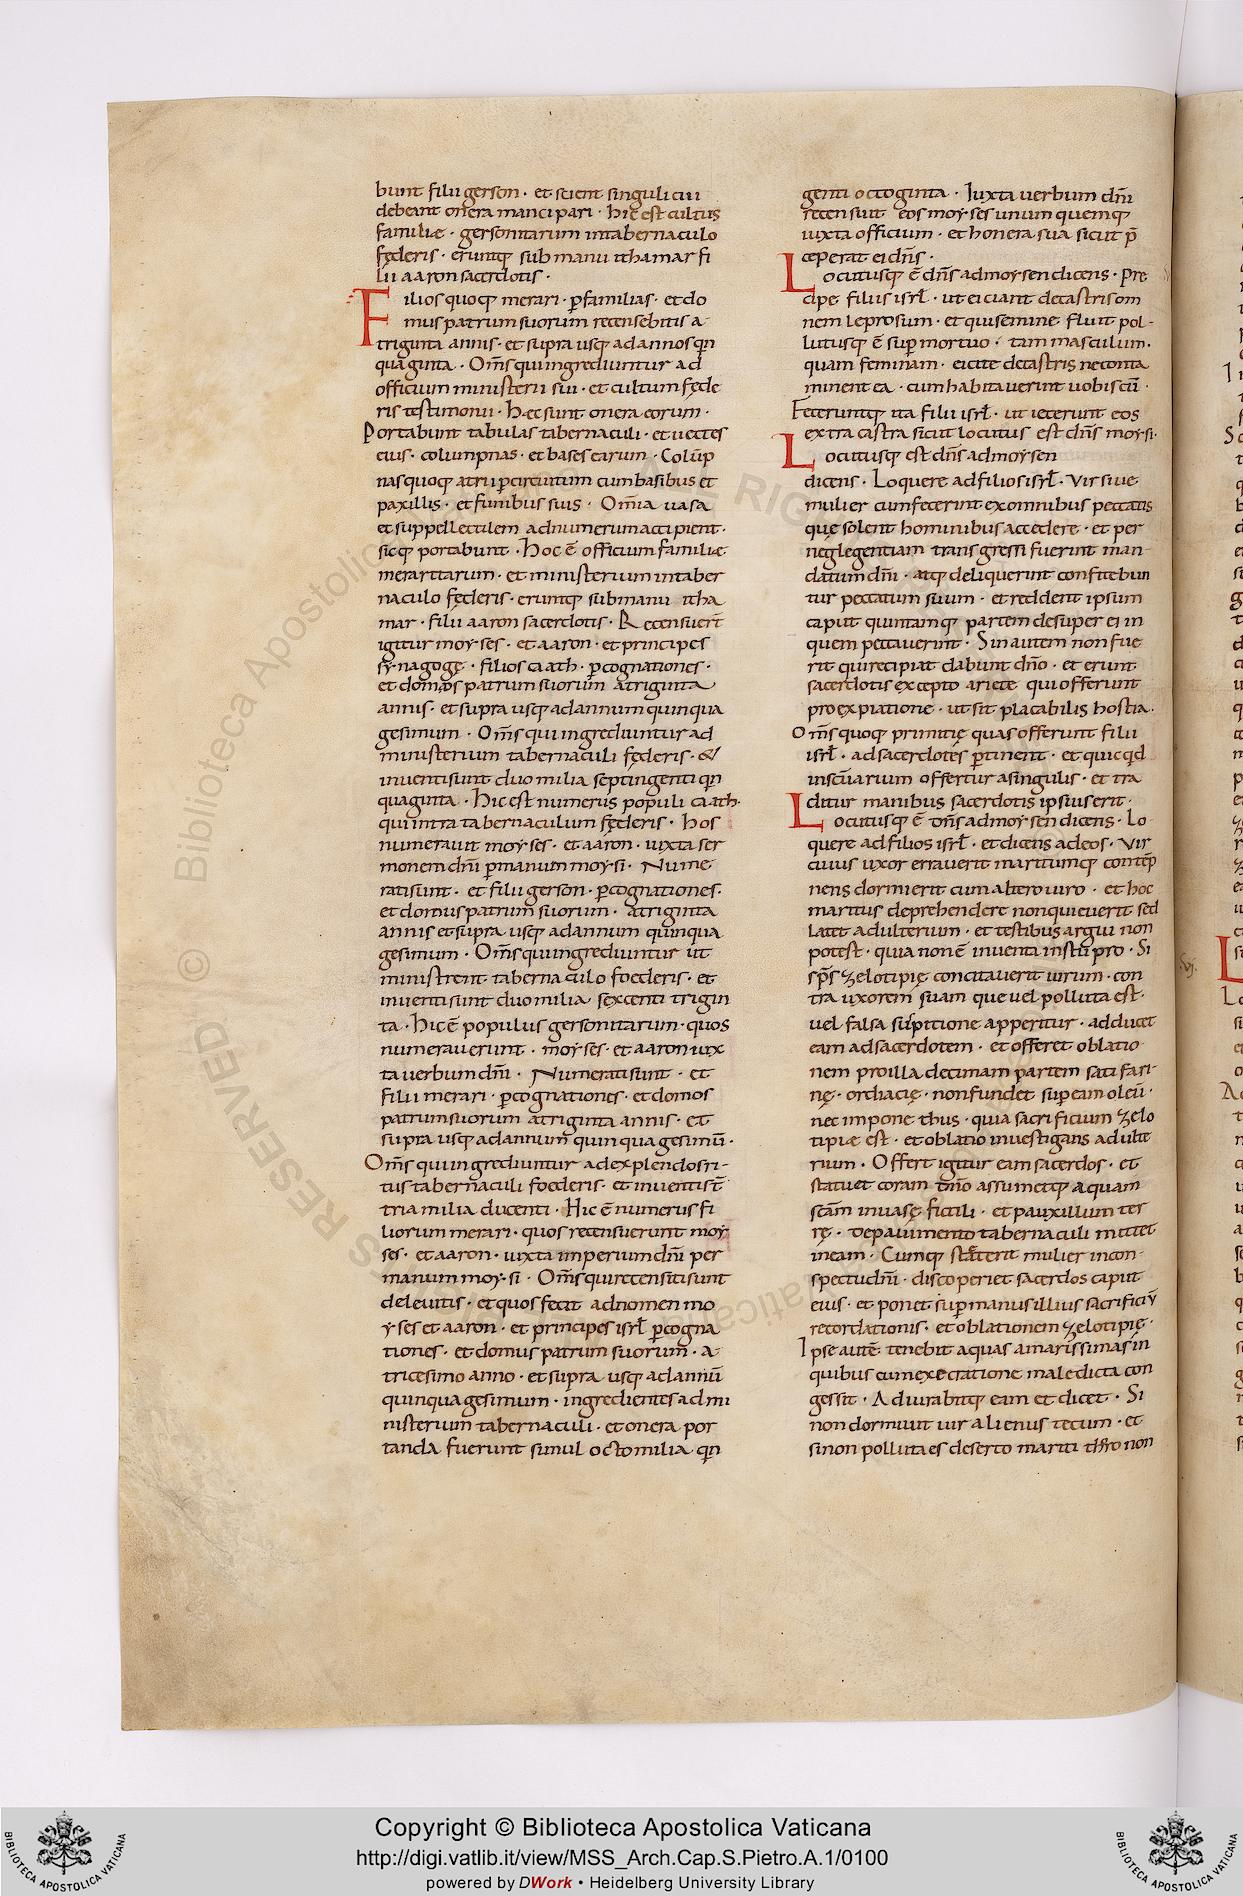 bunt filii gerson · et scient singuli cui
debeant onera mancipari · hic est cultus
familiæ · gersonitarum in tabernaculo
fęderis · eruntq; sub manu ithamar fi
lii aaron sacerdotis ·
Filios quoq; merari · p familias · et do
mus patrum suorum recensebitis a
triginta annis · et supra usq; ad annos qn
quaginta · Om̄s qui ingrediuntur ad
officium ministerii sui · et cultum fęde
ris testimonii · hæc sunt onera eorum ·
Portabunt tabulas tabernaculi · et uectes
eius · columpnas · et bases earum · Colūp
nas quoq; atrii p circuitum cum basibus et
paxillis · et funibus suis · Om̄ia uasa
et suppellectilem ad numerum accipient ·
sicq; portabunt · hoc ē officium familiæ
meraritarum · et ministerium in taber
naculo fęderis · eruntq; sub manu itha
mar · filii aaron sacerdotis · Recensuer̄t
igitur moyses · et aaron · et principes
synagogę · filios caath · p cognationes ·
et domos patrum suorum a triginta
annis · et supra usq; ad annum quinqua
gesimum · Om̄s qui ingrediuntur ad
ministerium tabernaculi fęderis · &
inuenti sunt duo milia septingenti qn
quaginta · hic est numerus populi caath ·
qui intra tabernaculum fęderis · hos
numerauit moyses · et aaron · iuxta ser
monem dn̄i p manum moysi · Nume
rati sunt · et filii gerson · p cognationes ·
et domus patrum suorum · a triginta
annis et supra usq; ad annum quinqua
gesimum · Om̄s qui ingrediuntur ut
ministrent tabernaculo foederis · et
inuenti sunt duo milia sexcenti trigin
ta · hic ē populus gersonitarum · quos
numerauerunt · moyses · et aaron iux
ta uerbum dn̄i · Numerati sunt · et
filii merari · p cognationes · et domos
patrum suorum a triginta annis · et
supra usq; ad annum quinquagesimū ·
Om̄s qui ingrediuntur ad explendos ri-
tus tabernaculi foederis · et inuenti st̄
tria milia ducenti · hic ē numerus fi
liorum merari · quos recensuerunt moy
ses · et aaron · iuxta imperium dn̄i per
manum moysi · Om̄s qui recensiti sunt
de leuitis · et quos fecit ad nomen mo
yses et aaron · et principes isrl̄ p cogna
tiones · et domus patrum suorum · a
tricesimo anno · et supra usq; ad annū
quinquagesimum · ingredientes ad mi
nisterium tabernaculi · et onera por
tanda fuerunt simul octo milia qn
genti octoginta · Iuxta uerbum dn̄i
recensuit eos moyses unum quemq;
iuxta officium · et honera sua sicut p̄
ceperat ei dn̄s ·
Locutusq; ē dn̄s ad moysen dicens · Pre
cipe filiis isrl̄ · ut eiciant de castris om
nem leprosum · et qui semine fluit pol-
lutusq; ē sup mortuo · tam masculum ·
quam feminam · eicite de castris ne conta
minent ea · cum habitauerint uobiscū ·
Feceruntq; ita filii isrl̄ · ut iecerunt eos
extra castra sicut locutus est dn̄s moysi ·
Locutusq; est dn̄s ad moysen
dicens · Loquere ad filios isrl̄ · Vir siue
mulier cum fecerint ex omnibus peccatis
quę solent hominibus accedere · et per
neglegentiam transgressi fuerint man-
datum dn̄i · atq; deliquerint confitebun
tur peccatum suum · et reddent ipsum
caput quintamq; partem desuper ei in
quem peccauerint · Sin autem non fue
rit qui recipiat dabunt dn̄o · et erunt
sacerdotis excepto ariete qui offerunt
pro expiatione · ut sit placabilis hostia ·
Om̄s quoq; primitię quas offerunt filii
isrl̄ · ad sacerdotes ptinent · et quicqd
in scūarium offertur a singulis · et tra
ditur manibus sacerdotis ipsius erit ·
Locutusq; ē dn̄s ad moysen dicens · Lo
quere ad filios isrl̄ · et dicens ad eos · Vir
cuius uxor errauerit maritumq; contēp
nens dormierit cum altero uiro · et hoc
maritus deprehendere non quieuerit sed
latet adulterium · et testibus argui non
potest · quia non ē inuenta in stupro · Si
sps̄ zelotipię concitauerit uirum · con
tra uxorem suam que uel polluta est ·
uel falsa suspitione apperitur · adducet
eam ad sacerdotem · et offeret oblatio
nem pro illa decimam partem sati fari
nę · ordiacię · non fundet sup eam oleū ·
nec impone thus · quia sacrificium zelo
tipiæ est · et oblatio inuestigans adulte
rium · Offert igitur eam sacerdos · et
statuet coram dn̄o assumetq; aquam
scām in uasę fictili · et pauxillum ter
rę · de pauimento tabernaculi mittet
in eam · Cumq; stāterit mulier in con-
spectu dn̄i · discoperiet sacerdos caput
eius · et ponet sup manus illius sacrificiū
recordationis · et oblationem zelotipię ·
Ipse autē tenebit aquas amarissimas in
quibus cum execratione maledicta con
gessit · Adiurabitq; eam et dicet · Si
non dormiuit uir alienus tecum · et
si non polluta es deserto mariti thoro non
Copyright © Biblioteca Apostolica Vaticana
http://digi.vatlib.it/view/MSS_Arch.Cap.S.Pietro.A.1/0100
powered by DWork • Heidelberg University Library